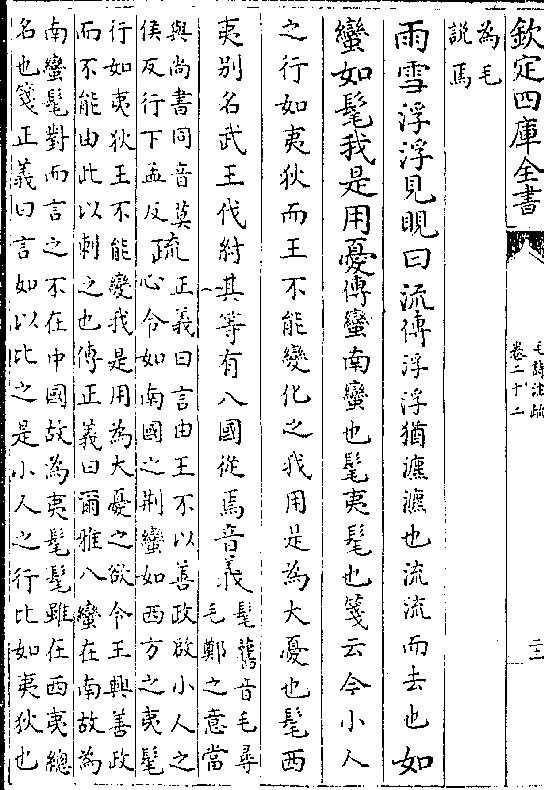 欽定四庫全書
毛詩注疏
卷二十二
為毛
說焉
雨雪浮浮見晛曰流傳浮浮猶瀌瀌也流流而去也如
蠻如髦我是用憂傳蠻南蠻也髦夷髦也箋云今小人
之行如夷狄而王不能變化之我用是為大憂也髦西
夷別名武王伐紂其等有八國從焉音義
髦舊音毛尋
毛鄭之意當
與尚書同音莫
侯反行下孟反
疏
正義曰言由王不以善政啟小人之
心令如南國之荆蠻如西方之夷髦
行如夷狄王不能變我是用為大憂之欲令王興善政
而不能由此以刺之也傳正義曰爾雅八蠻在南故為
南蠻髦對而言之不在中國故為夷髦髦雖在西夷總
名也箋正義曰言如以比之是小人之行比如夷狄也